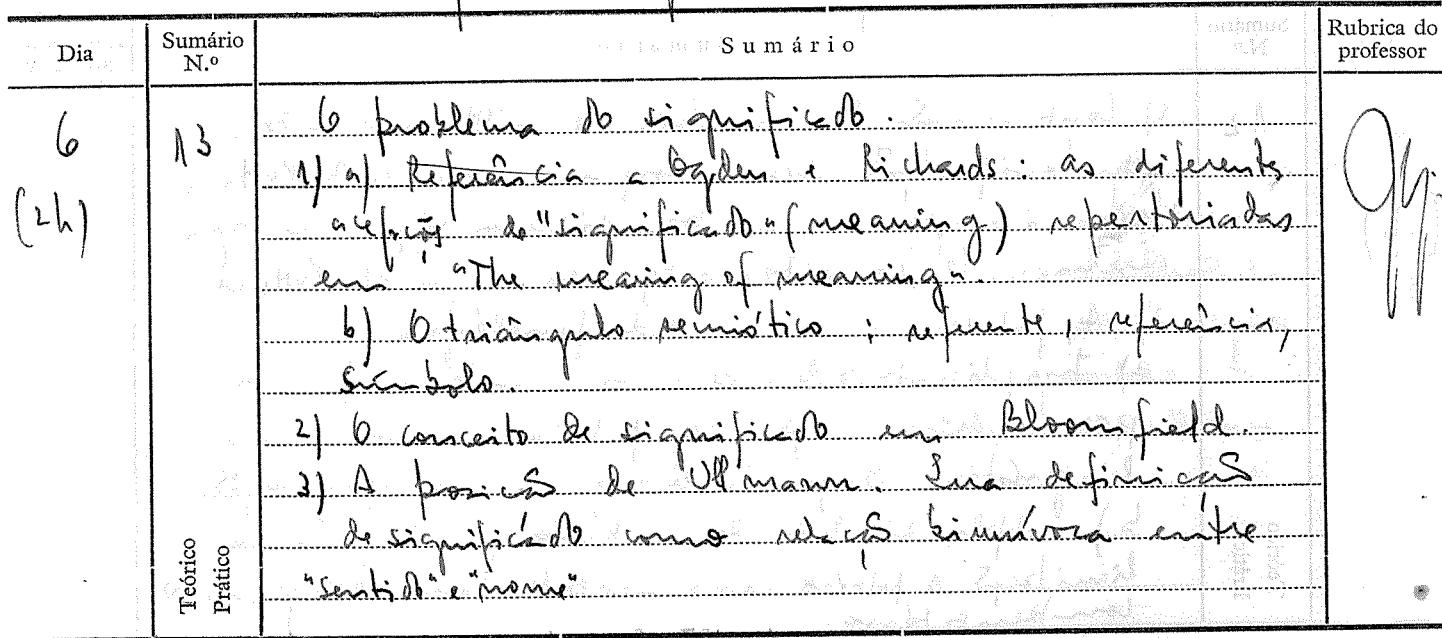 Dia
Sumário N.º
Sumário
Rubrica do professor
6
(2h)
13
O problema do significado.
1) a) Referência a Ogden e Richards: as diferentes
acepções de "significado" (meaning) repertoriadas
em "The meaning of meaning".
b) O triângulo semiótico: referente, referência,
símbolo.
2) O conceito de significado em Bloomfield.
3) A posição de Ullmann. Sua definição
de significado como relação biunívoca entre
"sentido" e "nome"
Teórico
Prático